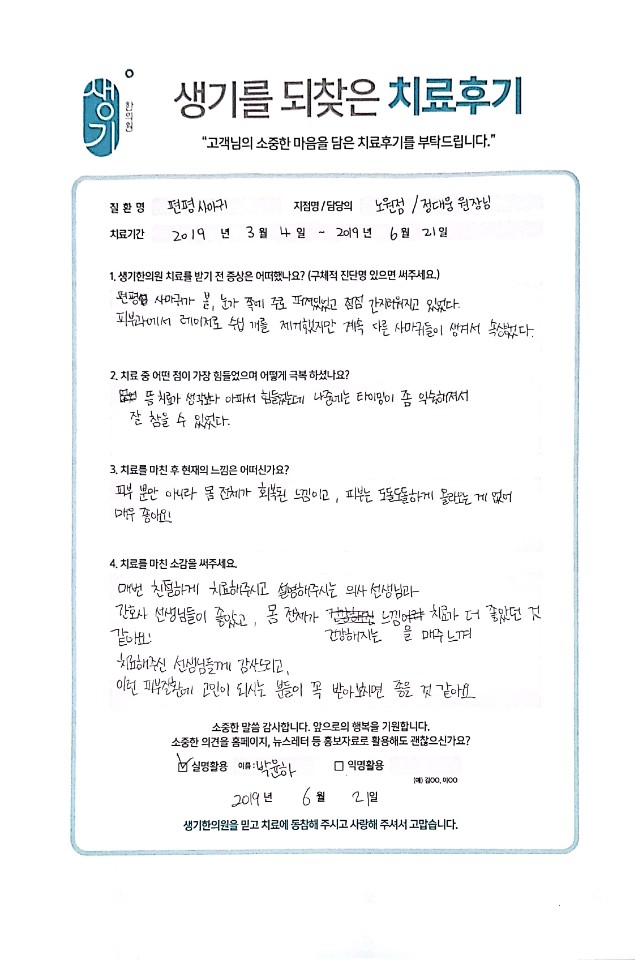 생기 한의원
생기를 되찾은 치료후기
“고객님의 소중한 마음을 담은 치료후기를 부탁드립니다.”
질 환 명 편평사마귀 지점명 / 담당의 노원점 / 정대웅 원장님
치료기간 2019 년 3 월 4 일 ~ 2019 년 6 월 21 일
1. 생기한의원 치료를 받기 전 증상은 어떠했나요? (구체적 진단명 있으면 써주세요.)
편평 사마귀가 볼, 눈가 쪽에 주로 퍼져있었고 점점 간지러워지고 있었다.
피부과에서 레이저로 수십 개를 제거했지만 계속 다른 사마귀들이 생겨서 속상했다.
2. 치료 중 어떤 점이 가장 힘들었으며 어떻게 극복 하셨나요?
뜸 치료가 생각보다 아파서 힘들었는데 나중에는 타이밍이 좀 익숙해져서
잘 참을 수 있었다.
3. 치료를 마친 후 현재의 느낌은 어떠신가요?
피부 뿐만 아니라 몸 전체가 회복된 느낌이고, 피부는 오돌도돌하게 올라오는 게 없어
매우 좋아요!
4. 치료를 마친 소감을 써주세요.
매번 친절하게 치료해주시고 설명해주시는 의사 선생님과
간호사 선생님들이 좋았고, 몸 전체가 건강해지는 느낌을 매주 느껴 치료가 더 좋았던 것
같아요!
치료해주신 선생님들께 감사드리고,
이런 피부질환에 고민이 되시는 분들이 꼭 받아보시면 좋을 것 같아요
소중한 말씀 감사합니다. 앞으로의 행복을 기원합니다.
소중한 의견을 홈페이지, 뉴스레터 등 홍보자료로 활용해도 괜찮으신가요?
☑ 실명활용 이름 : 박윤하 □ 익명활용
(예) 김OO, 이OO
2019 년 6 월 21 일
생기한의원을 믿고 치료에 동참해 주시고 사랑해 주셔서 고맙습니다.